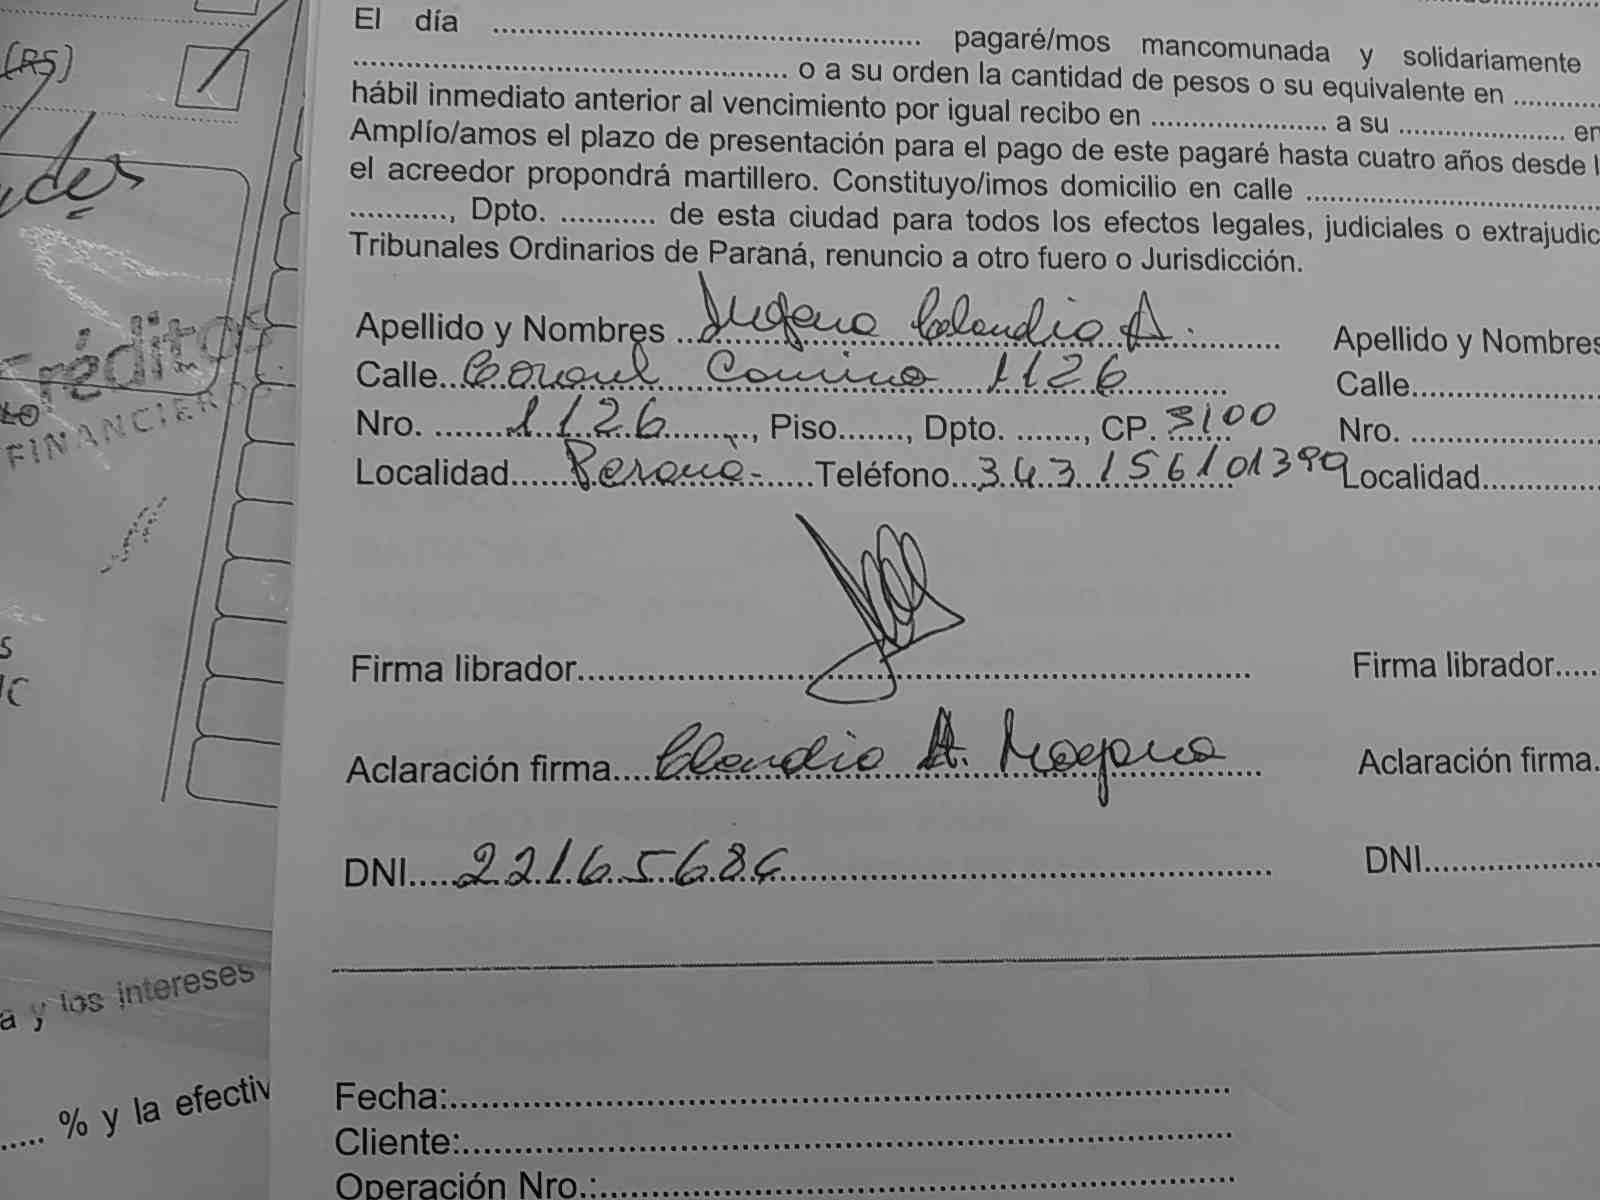 El día ............................................... pagaré/mos mancomunada y solidariamente
................................................ o a su orden la cantidad de pesos o su equivalente en ............
hábil inmediato anterior al vencimiento por igual recibo en ...................... a su ..................... en
Amplío/amos el plazo de presentación para el pago de este pagaré hasta cuatro años desde l
el acreedor propondrá martillero. Constituyo/imos domicilio en calle ................................
..........., Dpto. ........... de esta ciudad para todos los efectos legales, judiciales o extrajudic
Tribunales Ordinarios de Paraná, renuncio a otro fuero o Jurisdicción.
Apellido y Nombres ... Claudio A. Apellido y Nombres
Calle... 1126 Calle.....................
Nro. ........1126........., Piso......., Dpto. ......., CP. 3100 Nro. .....................
Localidad......Paraná.-......Teléfono...343 156101390 Localidad.............
Firma librador........................................................ Firma librador.....
Aclaración firma....Claudio A. Aclaración firma.
DNI.....22165684........................................ DNI....................
Fecha:................................................................
Cliente:...............................................................
Operación Nro.:.....................................................
(RS)
Créditos
FINANCIEROS
a y los intereses
..... % y la efectiv